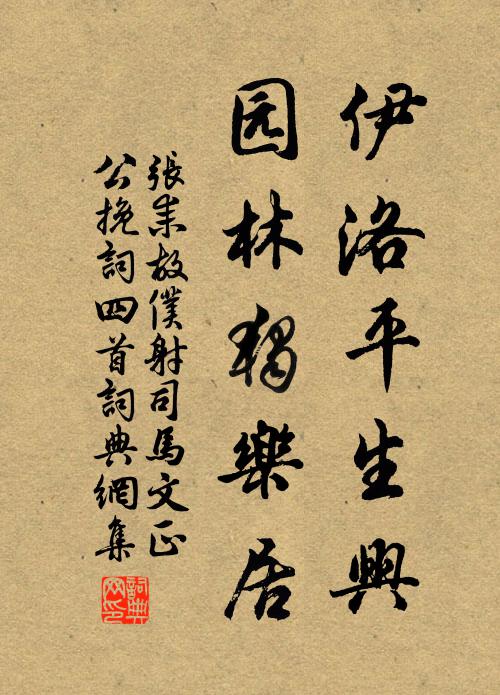 伊洛平生興
园林獨樂居
張耒故僕射司馬文正
公挽詞四首詞典網集
詞典網印